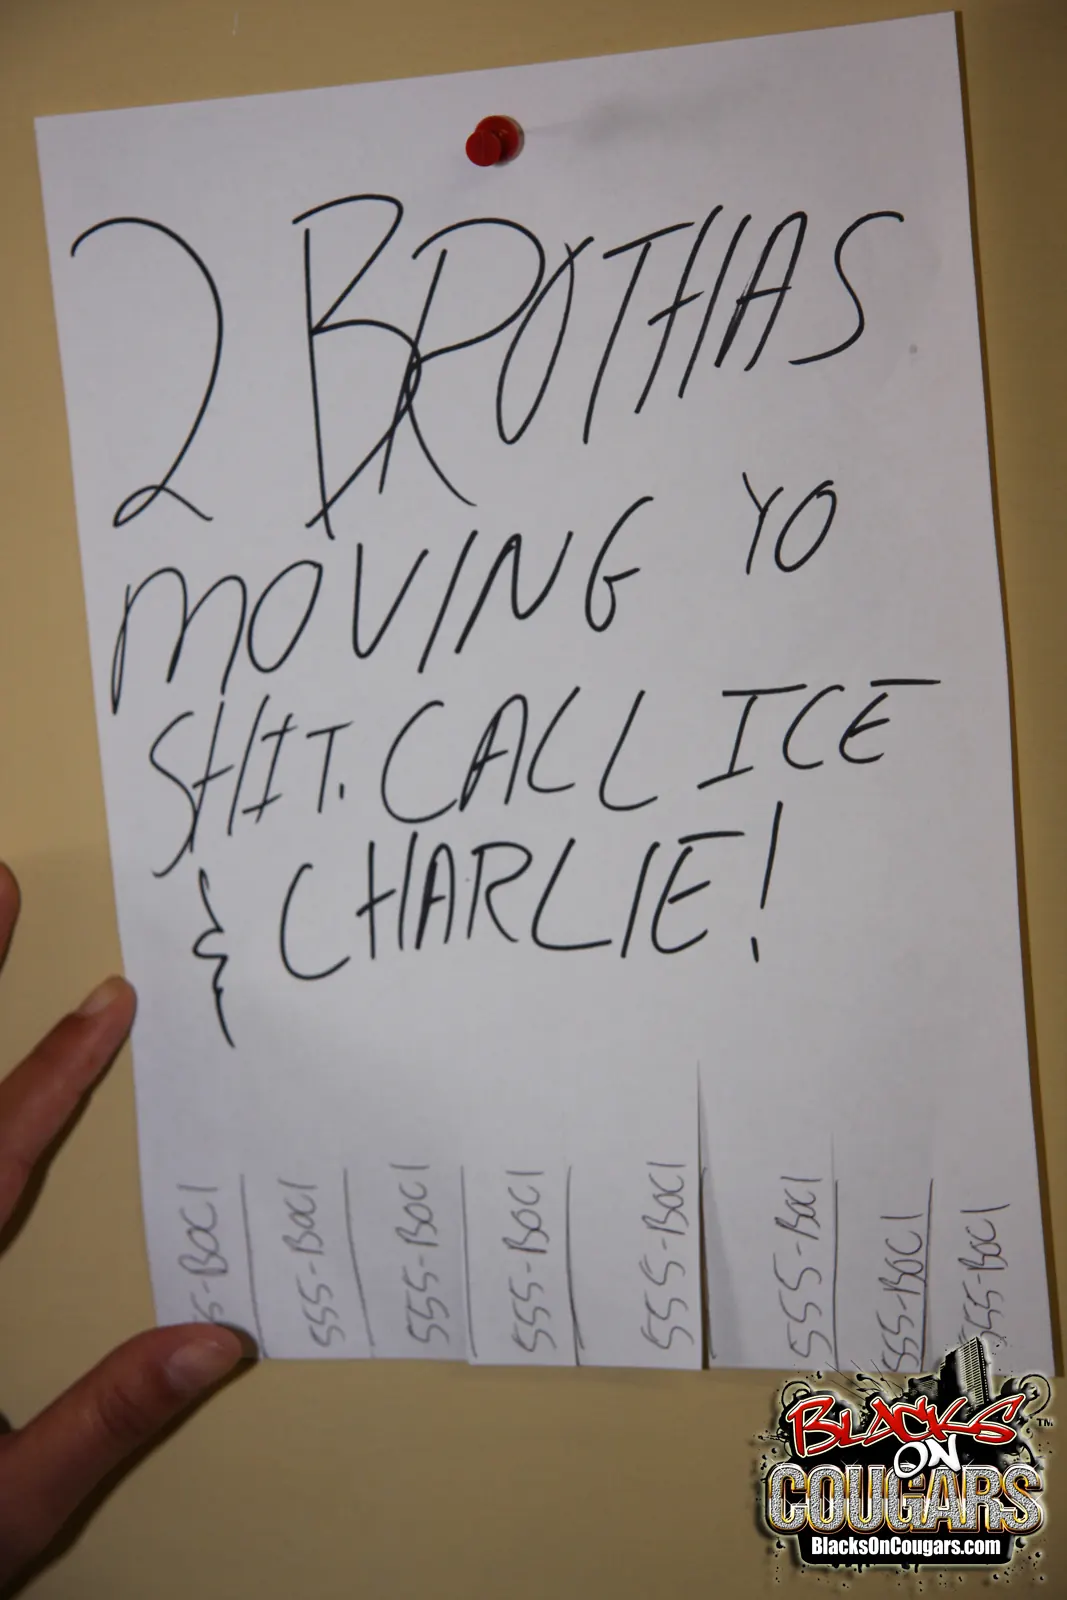 2 BROTHAS
MOVING YO
SHIT. CALL ICE
& CHARLIE!
55-BOC1
555-BOC1
555-BOC1
555-BOC1
555-BOC1
555-BOC1
555-BOC1
555-BOC1
BLACKS
ON
COUGARS
TM
BlacksOnCougars.com